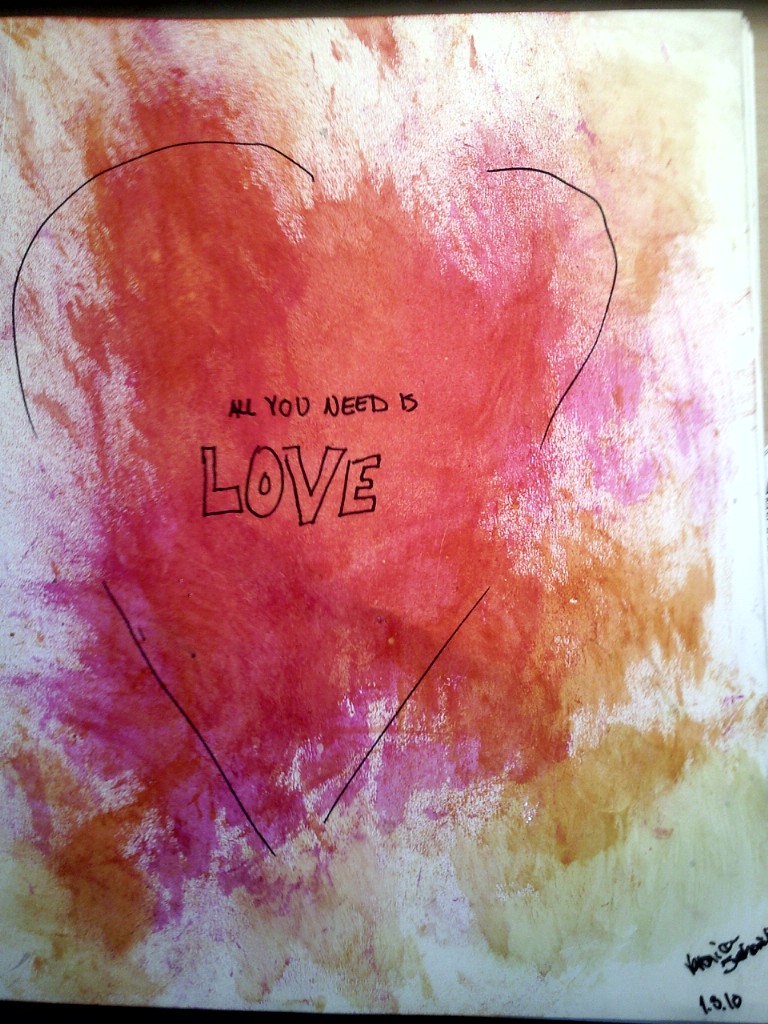 ALL YOU NEED IS
LOVE
1.8.10